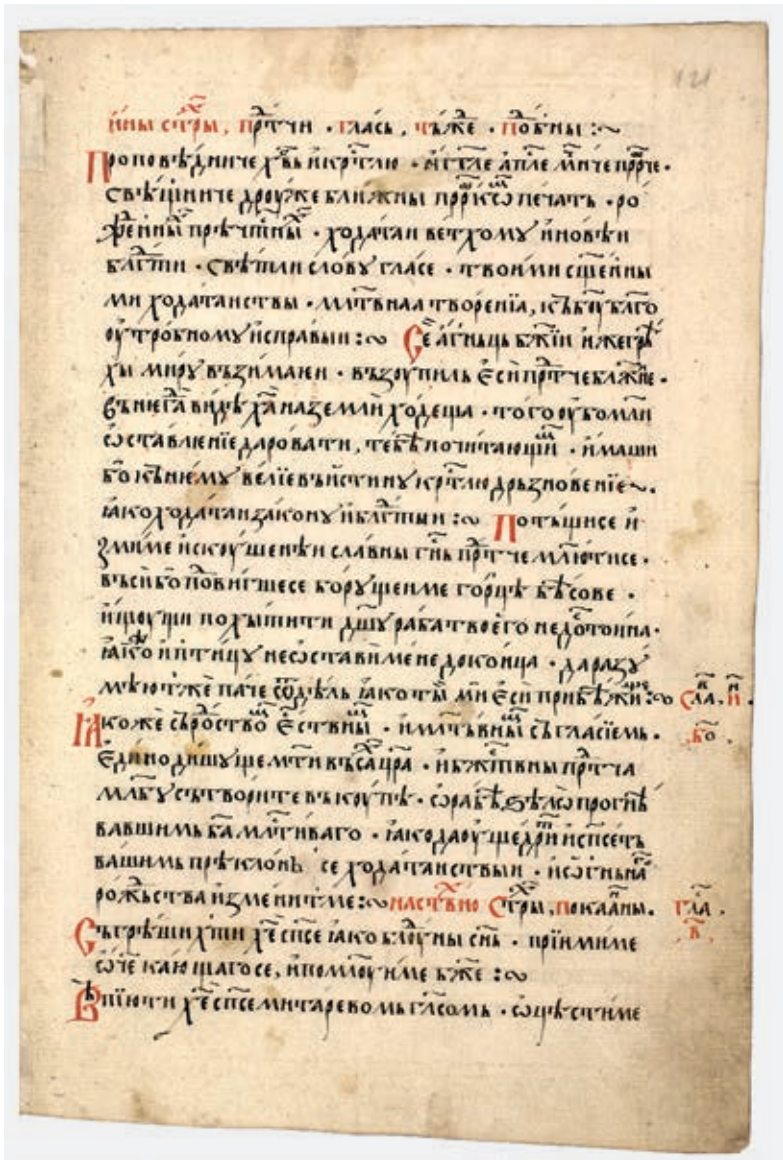 121
и҆ны стⷯры, прⷣтчи · глась, тъжⷣе · поⷣбны :~
Проповѣдниче хв҃ь и҆ крⷭ҇тлю · а҆гг҃ле а҆пⷭ҇ле мⷱ҇ниче прⷪ҇рче ·
свѣщниче дроуже ближны прⷪ҇ркѡⷨ печать · ро
жⷣенныⷨ прѣчⷭ҇тныⷨ · ходатаи ветхому и҆ новѣи
блгⷣти · свѣтли слову гласе · твоими сщ҃енны
ми ходатаиствы · млⷭ҇твнаа творенїа, къ боу бл҃го
оу҆тробному и҆справыи :~ Се а҆гньць бж҃їи и҆же грⷺ
хы миру възимаеи · възоупиль є҆си прⷣтче бл҃жне ·
вънегⷣа видѣ хⷭ҇а на земли ходеща · того оу҆бо мли
ѡ҆ставленїе даровати, тебѣ почитающїиⷨ · и҆маши
бо къ нѥму велїе въ и҆стину крⷭ҇тлю дрьзновенїе~.
ꙗ҆ко ходатаи закону и҆ блгⷣтыи :~ Потьщисе и҆
зми ме и҆скоушенѣи славны гн҃ь прⷣтче млю ти се ·
въси бо поⷣвигшесе борущеи ме горцѣ бѣсове ·
и҆щоущи похытити дш҃у раба твоѥго недоⷭ҇тоина ·
ꙗ҆ко и҆ птицу не ѡ҆стави мене до конца · да разу
мѣю тѣⷨже паче ѿдѣль ꙗ҆ко ты ми є҆си прибѣжище :~ слаⷡ. и҆ⷩ.
Ꙗ҆коже сьроⷣствоⷨ є҆ствныⷨ · и҆ млⷭ҇тъвныⷨ съгласїемь · бо.
є҆динодишуще мт҃и въсⷯ цр҃а · и҆ бжⷭ҇твны прⷣтча
млⷭ҇тву сътворите въкоупѣ · ѡ҆ рабѣ ѕѣлѡ прогнѣ
вавшимь ба҃ млⷭ҇тиваго · ꙗ҆ко да оу҆щедрит и҆ сп҃сеть
вашимь прѣклонь се ходатаиствыи · и҆ ѡ҆гньнаⷢ
рожьства и҆змени тме :~ настⷡ҇ьно стⷯры, покаⷶны. глаⷭ. в҃.
Съгрѣшихь ти хⷭ҇е сп҃се ꙗ҆ко блоудны сн҃ь · прїими ме
ѡ҆ч҃е кающагосе, и҆ помлоуи ме бж҃е :~
Въпїю ти хⷭ҇е сп҃се митаревомь глⷭ҇омь · ѡ҆цѣсти ме